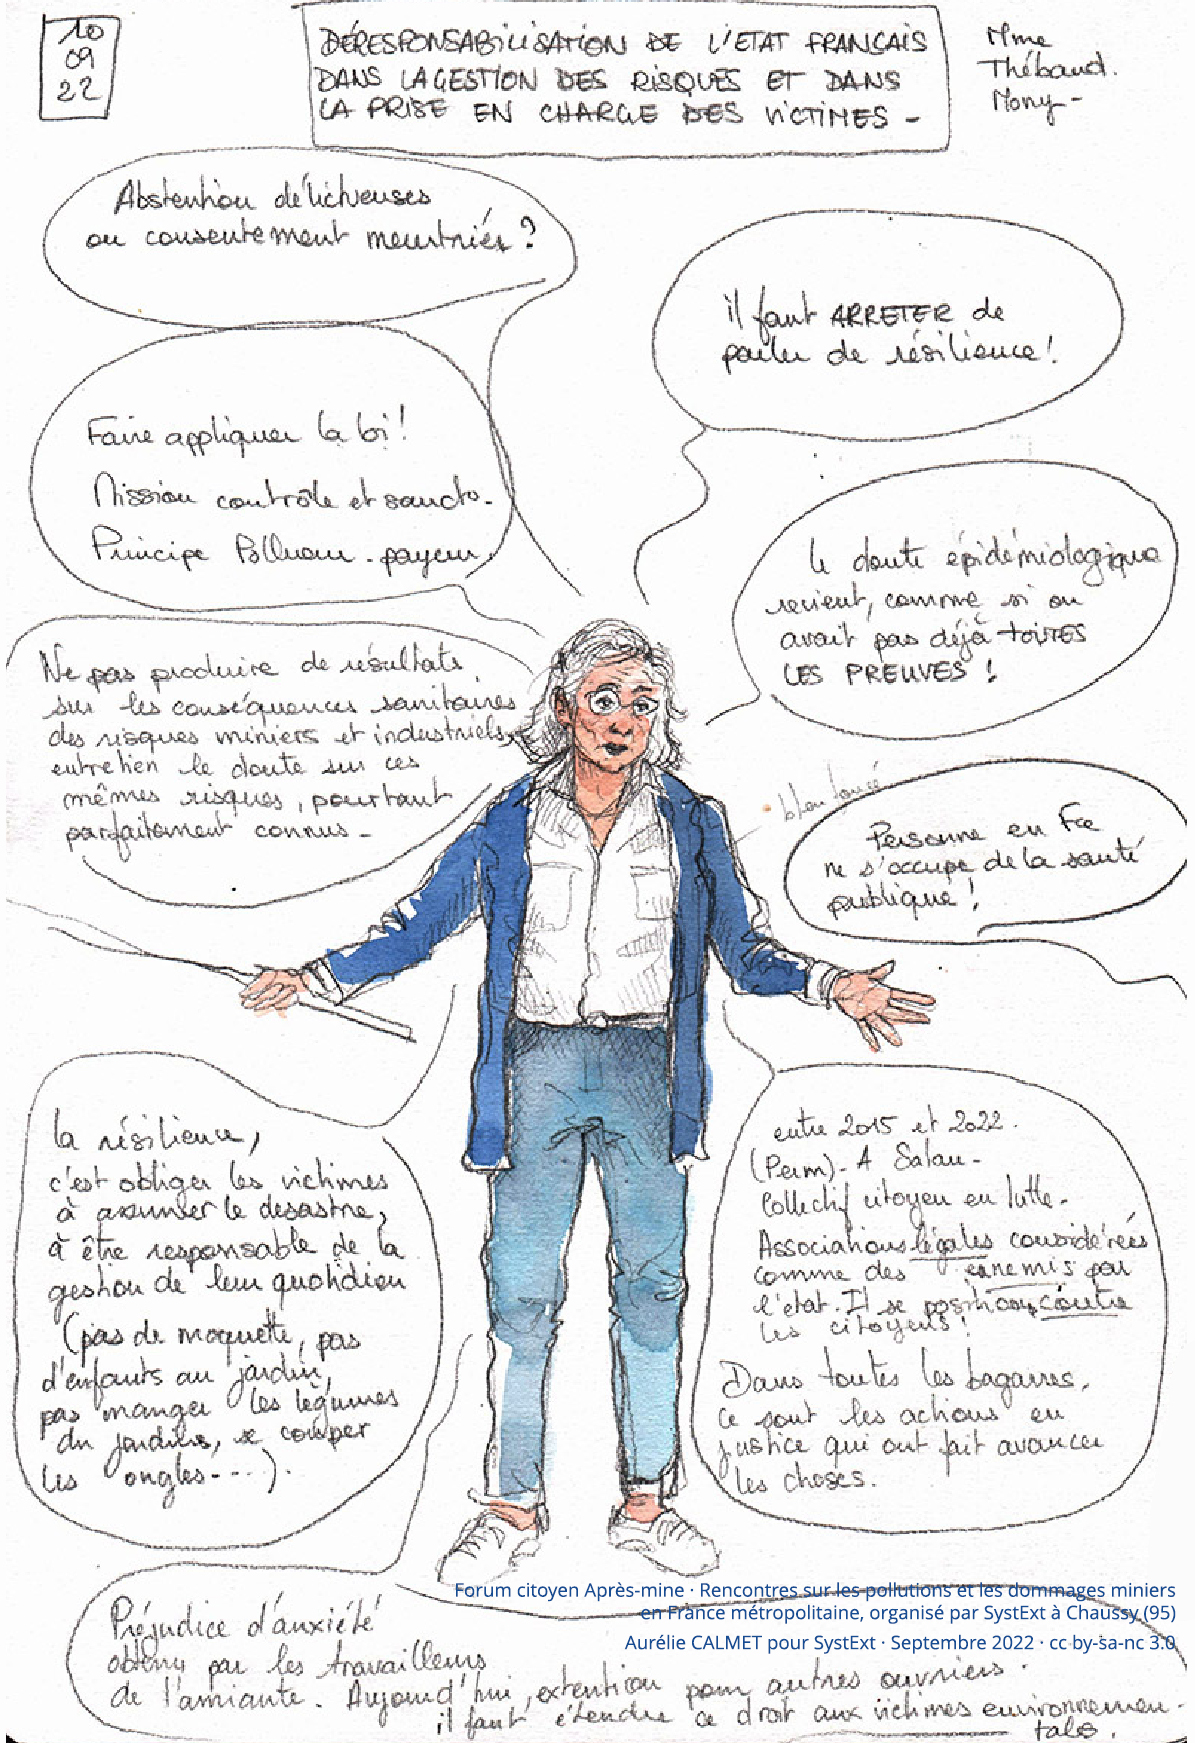 10
09
22
DÉRESPONSABILISATION DE L'ETAT FRANCAIS
DANS LA GESTION DES RISQUES ET DANS
LA PRISE EN CHARGE DES VICTIMES -
Mme
Thébaud.
Mony -
Abstention délictueuses
ou consentement meurtrier ?
il faut ARRETER de
parler de résilience !
Faire appliquer la loi !
Mission contrôle et sancto.
Principe Pollueur - payeur.
le doute épidémiologique
revient, comme si on
avait pas déjà TOUTES
LES PREUVES !
Ne pas produire de résultats
sur les conséquences sanitaires
des risques miniers et industriels,
entretien le doute sur ces
mêmes risques, pourtant
parfaitement connus -
bleu foncé
Personne en Fce
ne s'occupe de la santé
publique !
la résilience,
c'est obliger les victimes
à assumer le desastre,
à être responsable de la
gestion de leur quotidien
(pas de moquette, pas
d'enfants au jardin,
pas manger les légumes
du jardin, se couper
les ongles - - - ).
entre 2015 et 2022.
(Perm) - A Salau -
Collectif citoyen en lutte -
Associations légales considérées
comme des ennemis par
l'etat. Il se positionne contre
les citoyens !
Dans toutes les bagarres,
ce sont les actions en
justice qui ont fait avancer
les choses.
Forum citoyen Après-mine · Rencontres sur les pollutions et les dommages miniers
en France métropolitaine, organisé par SystExt à Chaussy (95)
Aurélie CALMET pour SystExt · Septembre 2022 · cc by-sa-nc 3.0
Préjudice d'anxiété
obtenu par les travailleurs
de l'amiante. Aujourd'hui, extention pour autres ouvriers.
il faut étendre ce droit aux victimes environnemen-
tales.